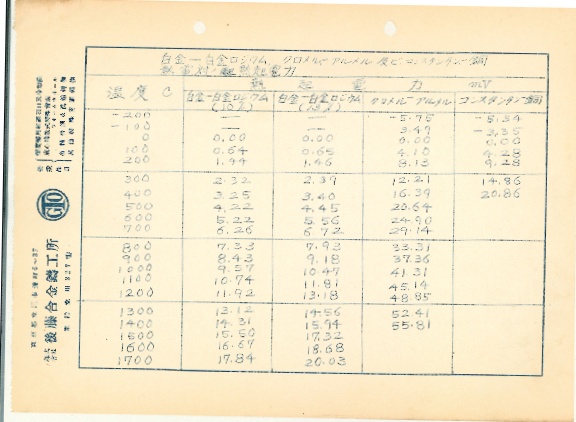 白金—白金ロジウム, クロメル—アルメル 及ビ コンスタンタン—銅
熱電対ノ熱起電力
熱 起 電 力 mV
温度 C 白金—白金ロジウム (10%) 白金—白金ロジウム (13%) クロメル—アルメル コンスタンタン—銅
-200 — — -5.75 -5.34
-100 — — 3.49 -3.35
0 0.00 0.00 0.00 0.00
100 0.64 0.65 4.10 4.28
200 1.44 1.46 8.13 9.28
300 2.32 2.39 12.21 14.86
400 3.25 3.40 16.39 20.86
500 4.22 4.45 20.64
600 5.22 5.56 24.90
700 6.26 6.72 29.14
800 7.33 7.93 33.31
900 8.43 9.18 37.36
1000 9.57 10.47 41.31
1100 10.74 11.81 45.14
1200 11.92 13.18 48.85
1300 13.12 14.56 52.41
1400 14.31 15.94 55.81
1500 15.50 17.32
1600 16.67 18.68
1700 17.84 20.03
後藤合金鑄工所